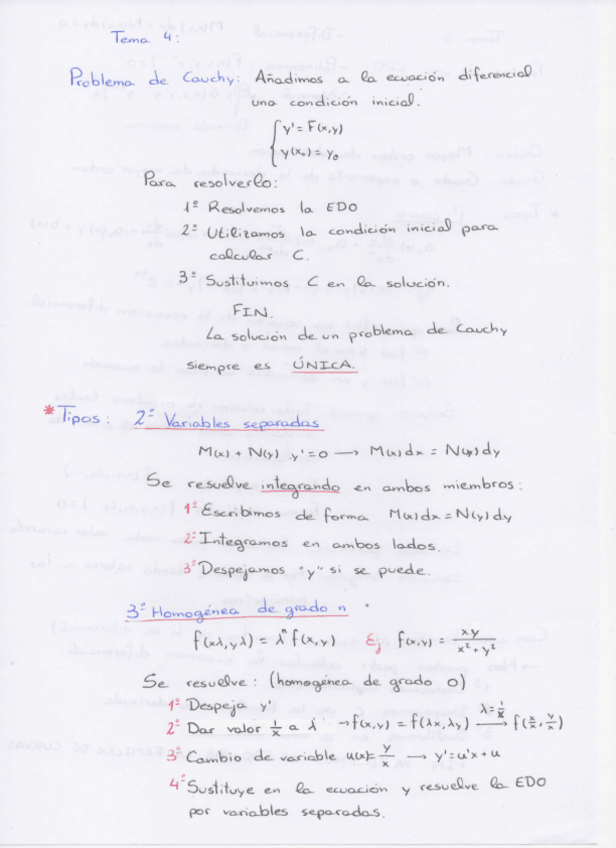 Tema 4:
Problema de Cauchy: Añadimos a la ecuación diferencial
una condición inicial.
{ y' = F(x,y)
y(x₀) = y₀
Para resolverlo:
1º Resolvemos la EDO
2º Utilizamos la condición inicial para
calcular C.
3º Sustituimos C en la solución.
FIN.
La solución de un problema de Cauchy
siempre es ÚNICA.
* Tipos: 2º Variables separadas
M(x) + N(y) y' = 0 → M(x)dx = N(y)dy
Se resuelve integrando en ambos miembros:
1º Escribimos de forma M(x)dx = N(y)dy
2º Integramos en ambos lados.
3º Despejamos "y" si se puede.
3º Homogénea de grado n
f(xλ, yλ) = λⁿ f(x,y) Ej f(x,y) = xy / x² + y²
Se resuelve: (homogénea de grado 0)
1º Despeja y'
2º Dar valor 1/x a λ → f(x,y) = f(λx, λy) λ=1/x → f(x/x, y/x)
3º Cambio de variable u(x) = y/x → y' = u'x + u
4º Sustituye en la ecuación y resuelve la EDO
por variables separadas.